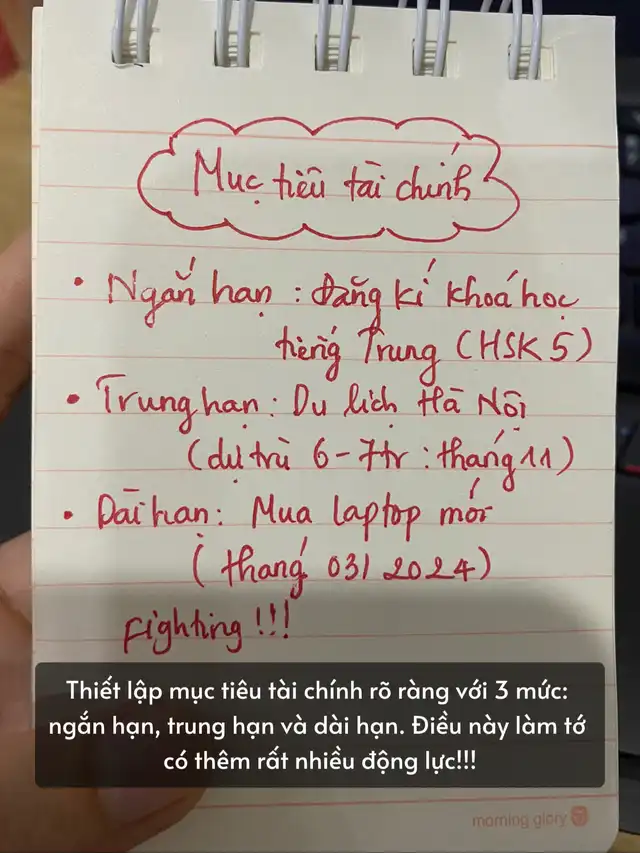 Mục tiêu tài chính
• Ngắn hạn : đăng kí khoá học
tiếng Trung (HSK 5)
• Trung hạn : Du lịch Hà Nội
(dự trù 6 - 7tr : tháng 11)
• Dài hạn : Mua laptop mới
( tháng 03/ 2024)
Fighting !!!
Thiết lập mục tiêu tài chính rõ ràng với 3 mức:
ngắn hạn, trung hạn và dài hạn. Điều này làm tớ
có thêm rất nhiều động lực!!!
morning glory